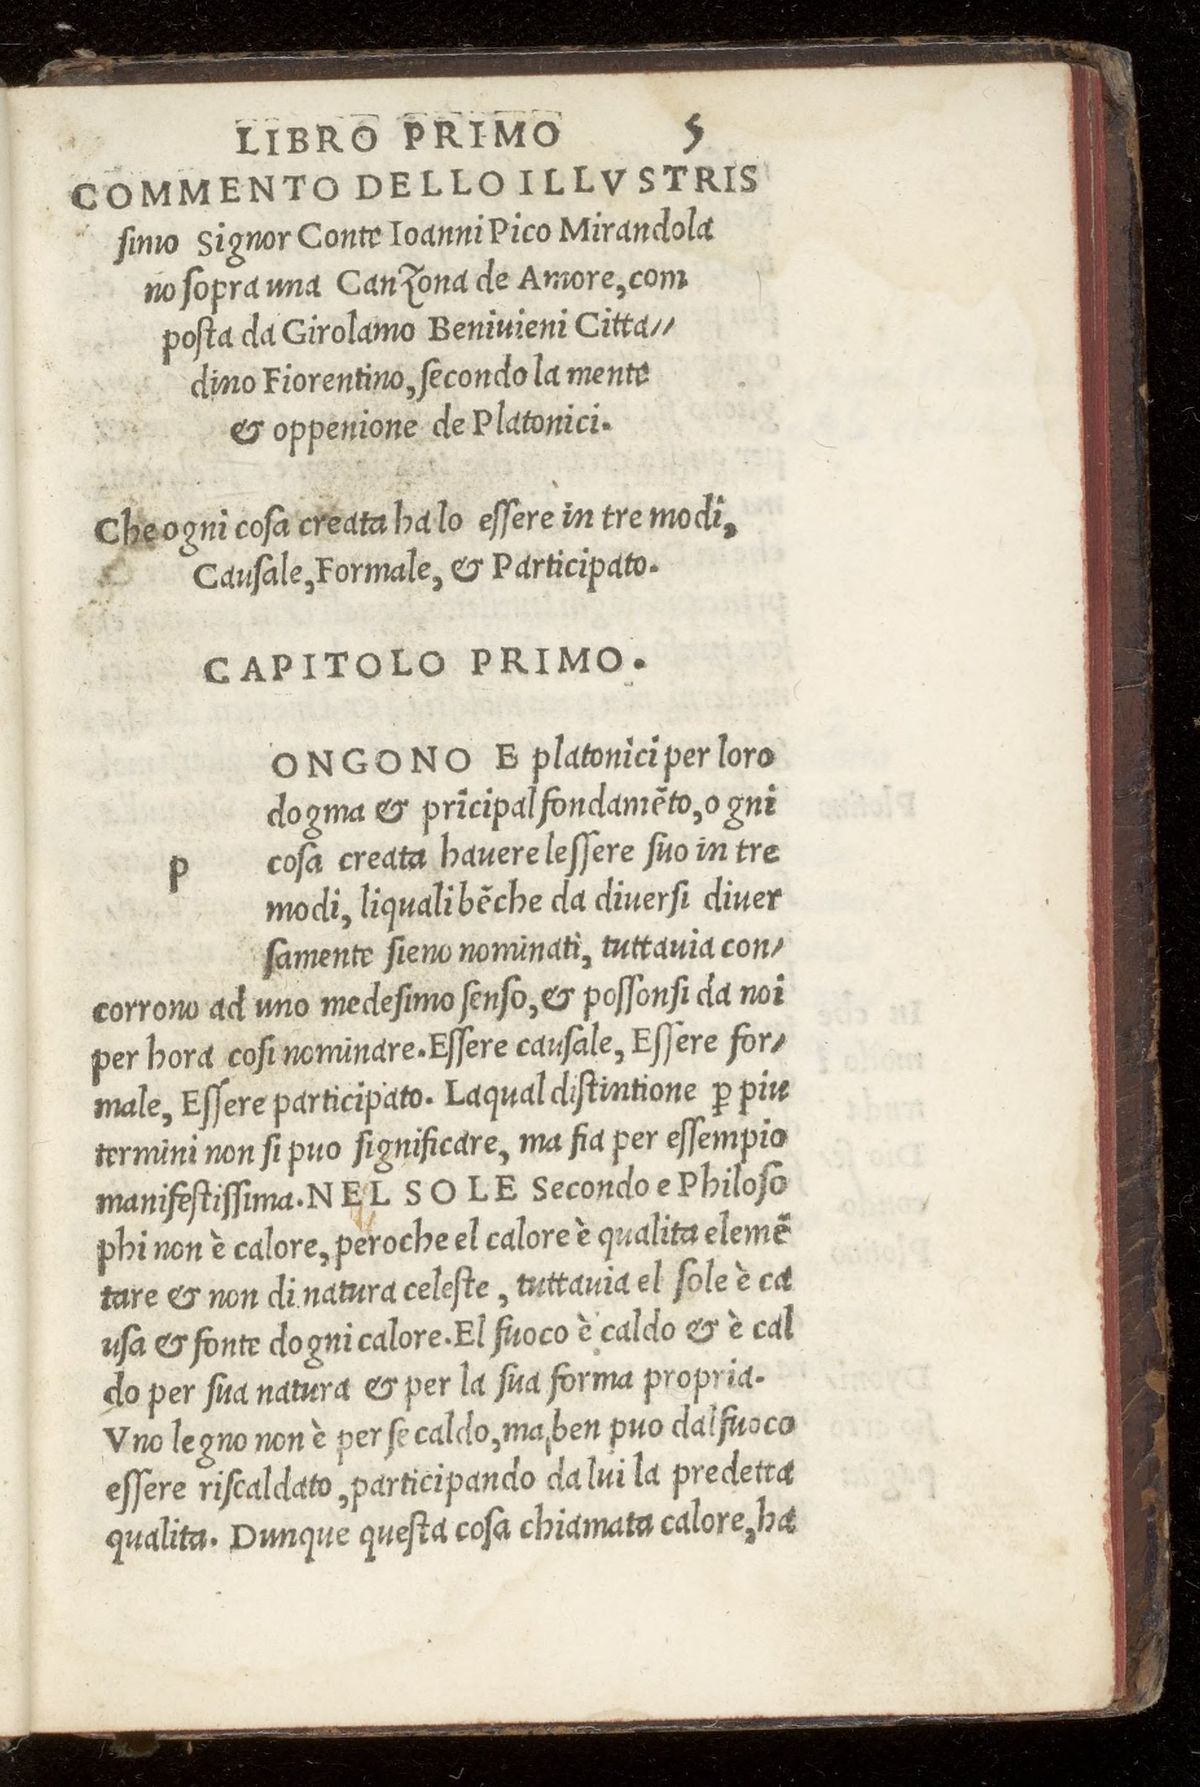 LIBRO PRIMO 5
COMMENTO DELLO ILLVSTRIS
simo Signor Conte Ioanni Pico Mirandola
no sopra una Canzona de Amore, com
posta da Girolamo Beniuieni Citta//
dino Fiorentino, secondo la mente
& oppenione de Platonici.
Che ogni cosa creata ha lo essere in tre modi,
Causale, Formale, & Participato.
CAPITOLO PRIMO.
P
ONGONO E platonici per loro
dogma & prīcipal fondamēto, ogni
cosa creata hauere lessere suo in tre
modi, liquali bēche da diuersi diuer
samente sieno nominati, tuttauia con/
corrono ad uno medesimo senso, & possonsi da noi
per hora cosi nominare. Essere causale, Essere for/
male, Essere participato. Laqual distintione ꝑ piu
termini non si puo significare, ma fia per essempio
manifestissima. NEL SOLE Secondo e Philoso
phi non è calore, peroche el calore è qualita elemē
tare & non di natura celeste, tuttauia el sole è ca
usa & fonte dogni calore. El fuoco è caldo & è cal
do per sua natura & per la sua forma propria.
Vno legno non è per se caldo, ma ben puo dal fuoco
essere riscaldato, participando da lui la predetta
qualita. Dunque questa cosa chiamata calore, ha